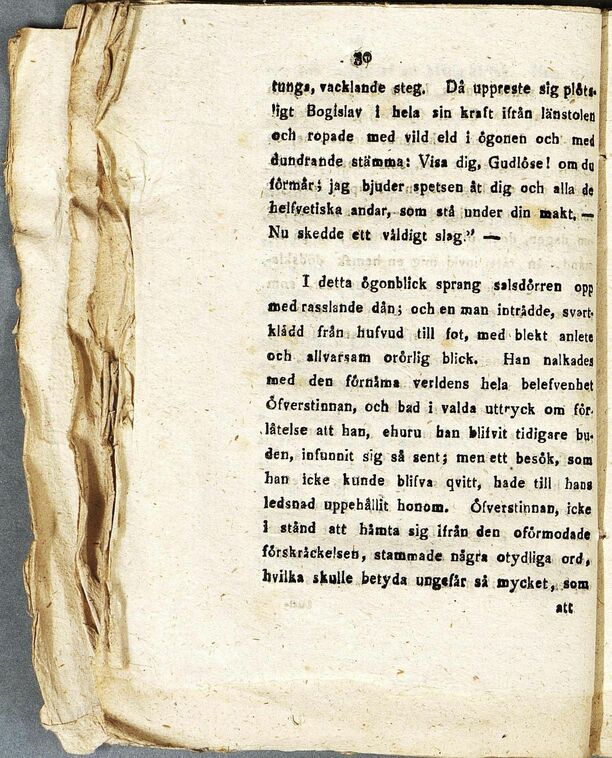 30
tunga, vacklande steg. Då uppreste sig plöts-
ligt Bogislav i hela sin kraft ifrån länstolen
och ropade med vild eld i ögonen och med
dundrande stämma: Visa dig, Gudlöse! om du
förmår; jag bjuder spetsen åt dig och alla de
helfvetiska andar, som stå under din makt, —
Nu skedde ett våldigt slag." —
I detta ögonblick sprang salsdörren opp
med rasslande dån; och en man inträdde, svart-
klädd från hufvud till fot, med blekt anlete
och allvarsam orörlig blick. Han nalkades
med den förnäma verldens hela belefvenhet
Öfverstinnan, och bad i valda uttryck om för-
låtelse att han, ehuru han blifvit tidigare bu-
den, infunnit sig så sent; men ett besök, som
han icke kunde blifva qvitt, hade till hans
ledsnad uppehållit honom. Öfverstinnan, icke
i stånd att hämta sig ifrån den oförmodade
förskräckelsen, stammade några otydliga ord,
hvilka skulle betyda ungefär så mycket, som
att